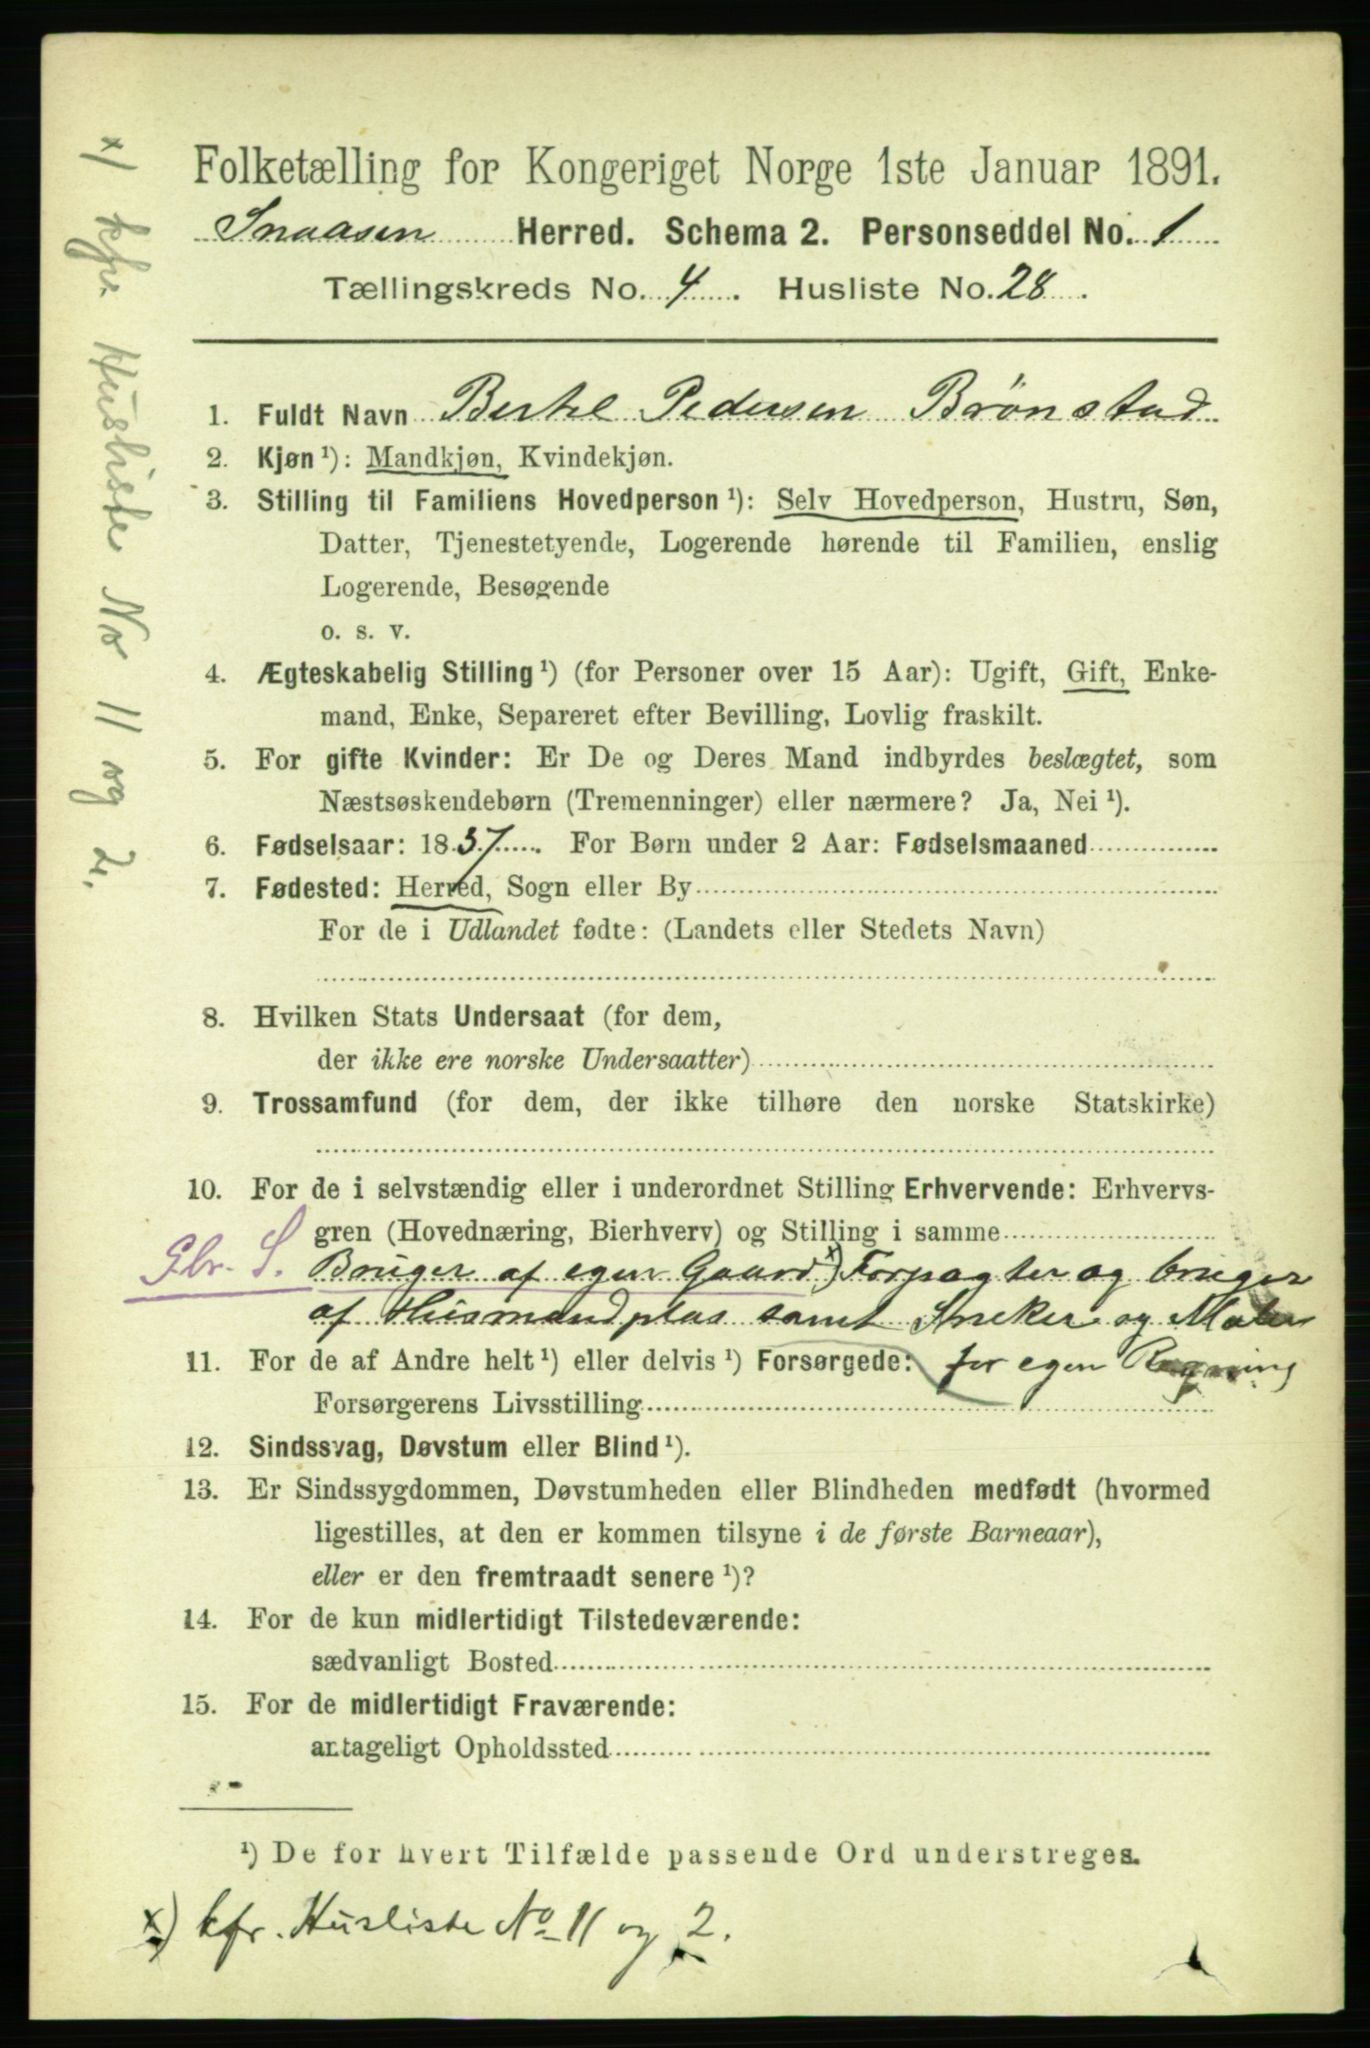 Folketælling for Kongeriget Norge 1ste Januar 1891.
Snaasen Herred. Schema 2. Personseddel No. 1
Tællingskreds No. 4. Husliste No. 28.
1. Fuldt Navn Berthel Pedersen Brönstad
2. Kjøn ¹): Mandkjøn, Kvindekjøn.
3. Stilling til Familiens Hovedperson ¹): Selv Hovedperson, Hustru, Søn,
Datter, Tjenestetyende, Logerende hørende til Familien, enslig
Logerende, Besøgende
o. s. v.
4. Ægteskabelig Stilling ¹) (for Personer over 15 Aar): Ugift, Gift, Enke-
mand, Enke, Separeret efter Bevilling, Lovlig fraskilt.
5. For gifte Kvinder: Er De og Deres Mand indbyrdes beslægtet, som
Næstsøskendebørn (Tremenninger) eller nærmere? Ja, Nei ¹).
6. Fødselsaar: 1837. For Børn under 2 Aar: Fødselsmaaned
7. Fødested: Herred, Sogn eller By
For de i Udlandet fødte: (Landets eller Stedets Navn)
8. Hvilken Stats Undersaat (for dem,
der ikke ere norske Undersaatter)
9. Trossamfund (for dem, der ikke tilhøre den norske Statskirke)
10. For de i selvstændig eller i underordnet Stilling Erhvervende: Erhvervs-
gren (Hovednæring, Bierhverv) og Stilling i samme
Gbr. S. Bruger af egen Gaard x) Forpagter og bruger
af Husmandplas samt Sneker og Maler
11. For de af Andre helt ¹) eller delvis ¹) Forsørgede: for egen Regning
Forsørgerens Livsstilling
12. Sindssvag, Døvstum eller Blind ¹).
13. Er Sindssygdommen, Døvstumheden eller Blindheden medfødt (hvormed
ligestilles, at den er kommen tilsyne i de første Barneaar),
eller er den fremtraadt senere ¹)?
14. For de kun midlertidigt Tilstedeværende:
sædvanligt Bosted
15. For de midlertidigt Fraværende:
antageligt Opholdssted
¹) De for hvert Tilfælde passende Ord understreges.
x) kfr. Husliste No 11 og 2.
x) kfr. Husliste No 11 og 2.